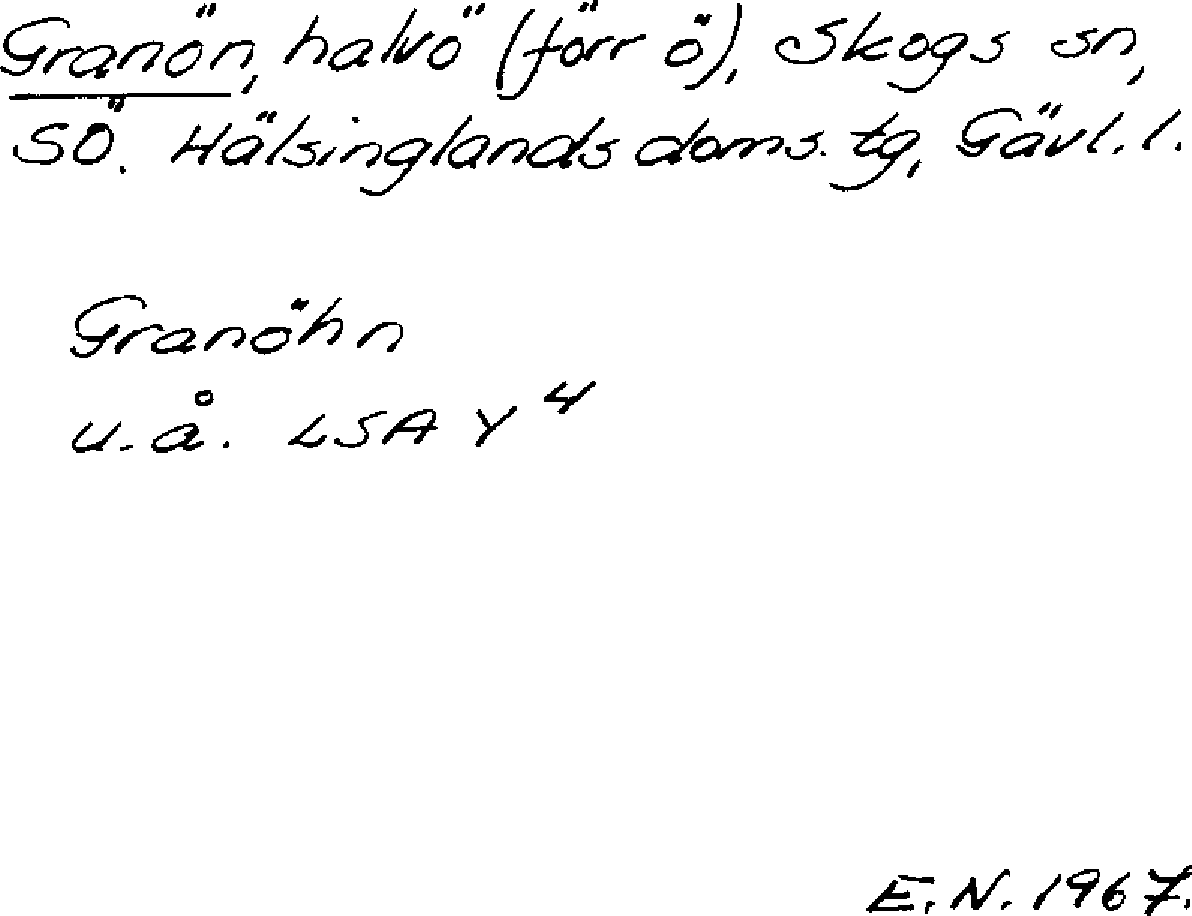 Granön, halvö (förr ö), Skogs sn,
SÖ. Hälsinglands doms. tg, Gävl. l.
Granöhn
u. å. LSA Y 4
E. N. 1967.